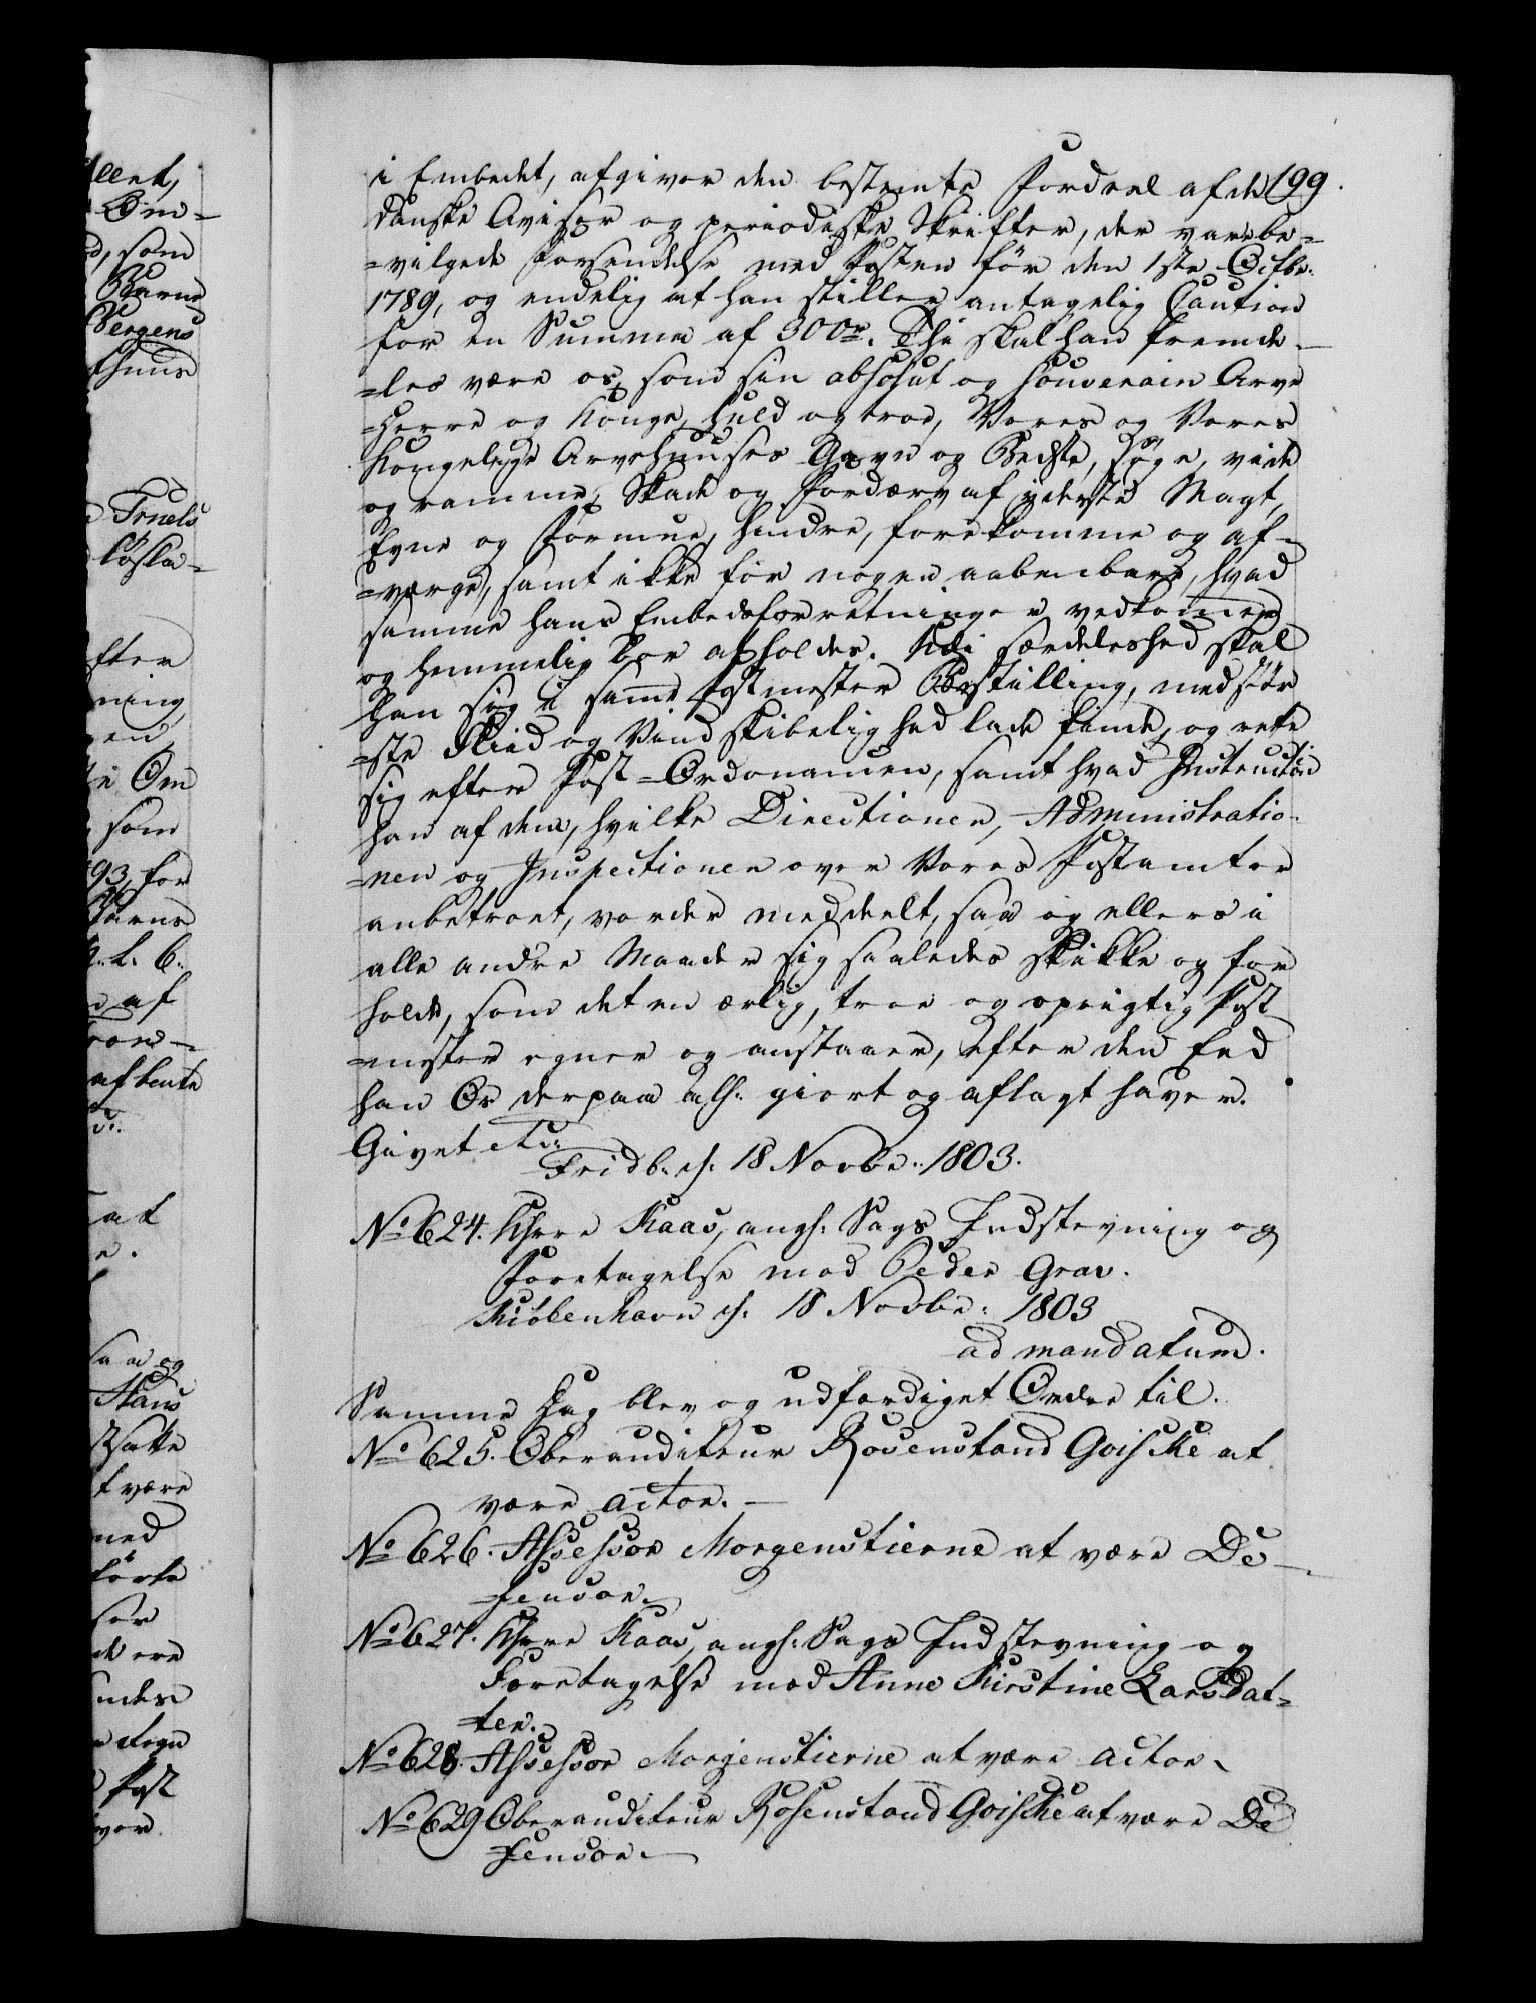 199.
i Embedet, afgiver den bestemte Fordeel af de
danske Aviser og periodiske Skrifter, der vare be=
=vilgede Forsendelse med Posten før den 1ste Octbr:
1789, og endelig at han stiller antagelig Caution
for en Summa af 300r. Thi skal han fremde=
=les være os, som sin absolut og souverain Arve
=Herre og Konge, huld og troe, Vores og Vores
Kongelige Arvehuuses Gavn og Bedste, søge, vide
og ramme, Skade og Fordærv af yderste Magt,
Evne og Formue, hindre, forekomme og af=
=værge, samt ikke for nogen aabenbare, hvad
samme hans Embedsforretninger vedkommer
og hemmelig bør afholdes. Udi særdeleshed skal
han sig i samme Postmester Bestilling, med stør
=ste Fliid og Vindskibelighed lade finde, og rette
sig efter Post=Ordonancen, samt hvad Instruction
han af dem, hvilke Directionen, Administratio=
=nen og Inspectionen over Vores Postamter
anbetroet, vorder meddeelt, saa og ellers i
alle andre Maader sig saaledes skikke og for
holde, som det en ærlig, troe og oprigtig Post
=mester egner og anstaaer, efter den Eed
han Os derpaa alh: giort og aflagt haver.
Givet etc:
Fridb: d: 18 Novbr: 1803.
No 624. Khrre Kaas, angl: Sags Indstevning og
Foretagelse mod Peder Grav.
Kiøbenhavn d: 18 Novbr: 1803
ad mandatum.
Samme Dag blev og udfærdiget Ordre til.
No 625. Oberauditeur Rosenstand Goiske at
være Actor.
No 626. Assessor Morgenstierne at være De=
=fensor.
No 627. Khrre Kaas, angl: Sags Indstevning og
Foretagelse mod Anne Kirstine Larsdat=
=ter.
No 628. Assessor Morgenstierne at være Actor.
No 629 Oberauditeur Rosenstand Goiske at være De
=fensor.